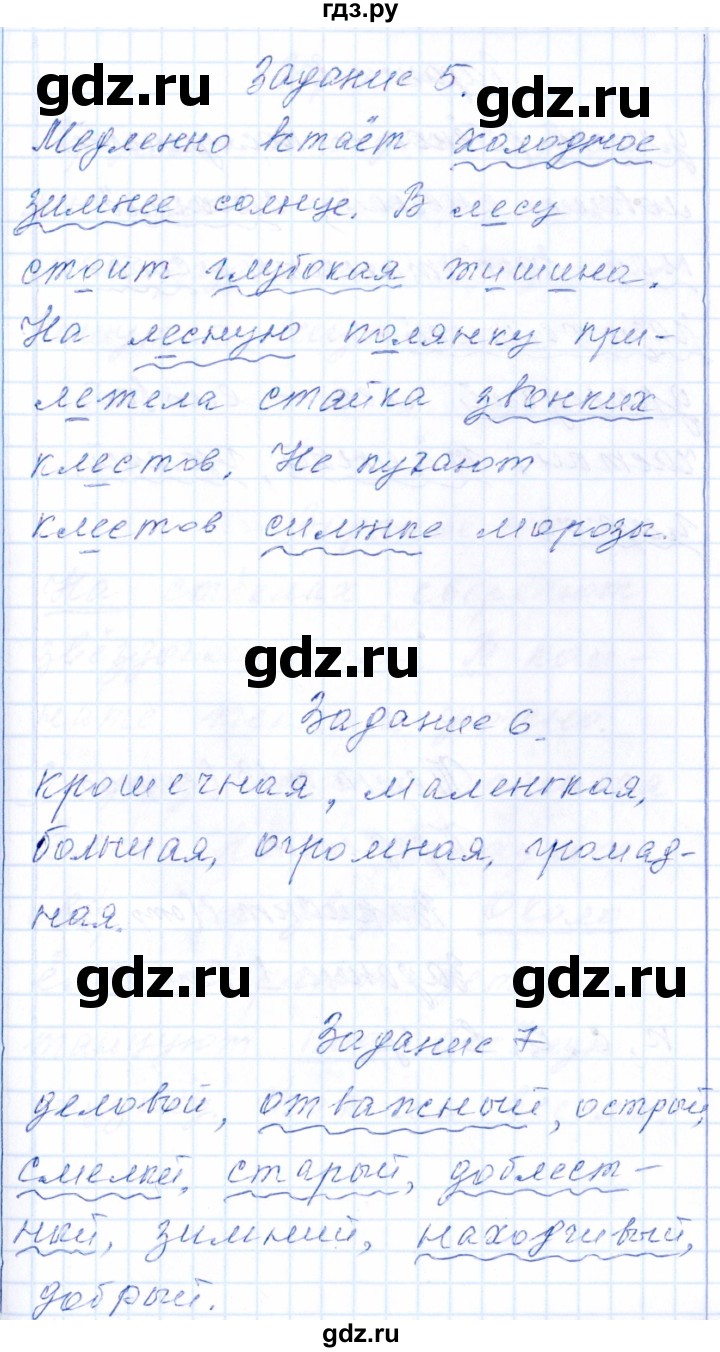 гдз.ру
gdz.ru gdz.ru
Задание 5.
Медленно встаёт холодное
зимнее солнце. В лесу
стоит глубокая тишина.
На лесную полянку при-
летела стайка звонких
клестов. Не пугают
клестов силные морозы.
gdz.ru
Задание 6.
крошечная, маленькая,
большая, огромная, громад-
ная.
gdz.ru gdz.ru
Задание 7
деловой, отважный, острый,
смелый, старый, доблест-
ный, зимний, находчивый,
добрый.
gdz.ru